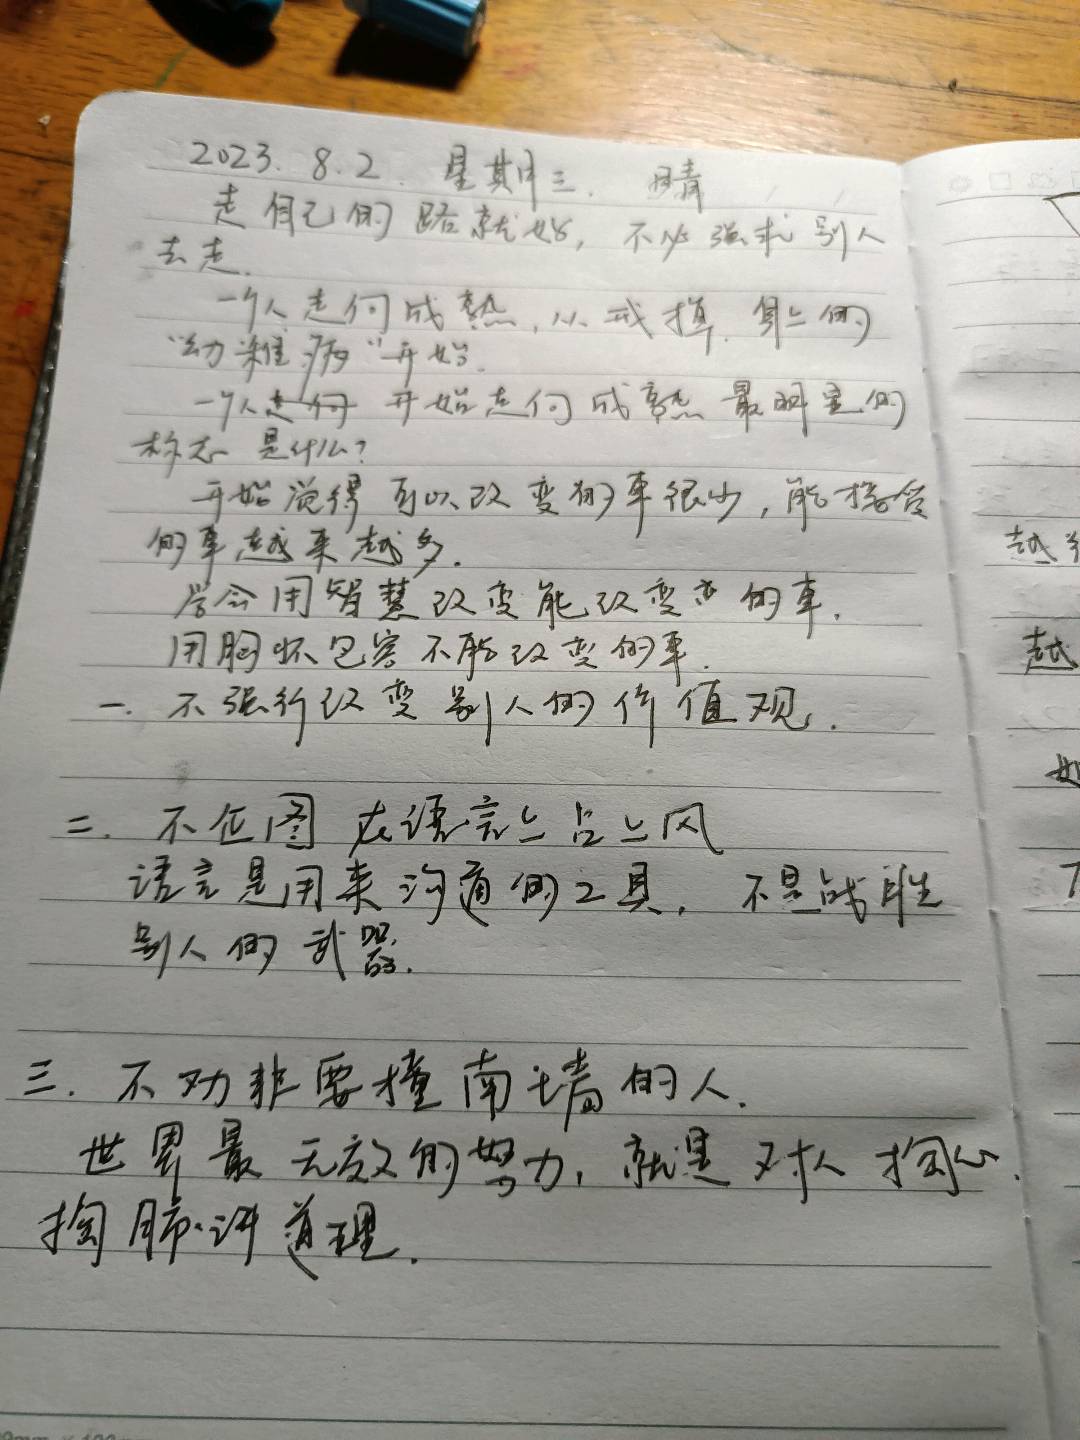 2023. 8.2. 星期三. 晴
走自己的路就好, 不必强求别人
去走.
一个人走向成熟, 从戒掉 身上的
"幼稚病"开始.
一个人走向 开始走向成熟最明显的
标志 是什么?
开始觉得可以改变的事很少, 能接受
的事越来越多.
学会用智慧改变能改变 的事.
用胸怀包容不能改变的事.
一. 不强行改变别人的价值观.
二. 不企图 在语言上占上风
语言是用来沟通的工具, 不是战胜
别人的武器.
三. 不劝非要撞南墙的人.
世界最无效的努力, 就是对人掏心.
掏肺讲道理.
越
越